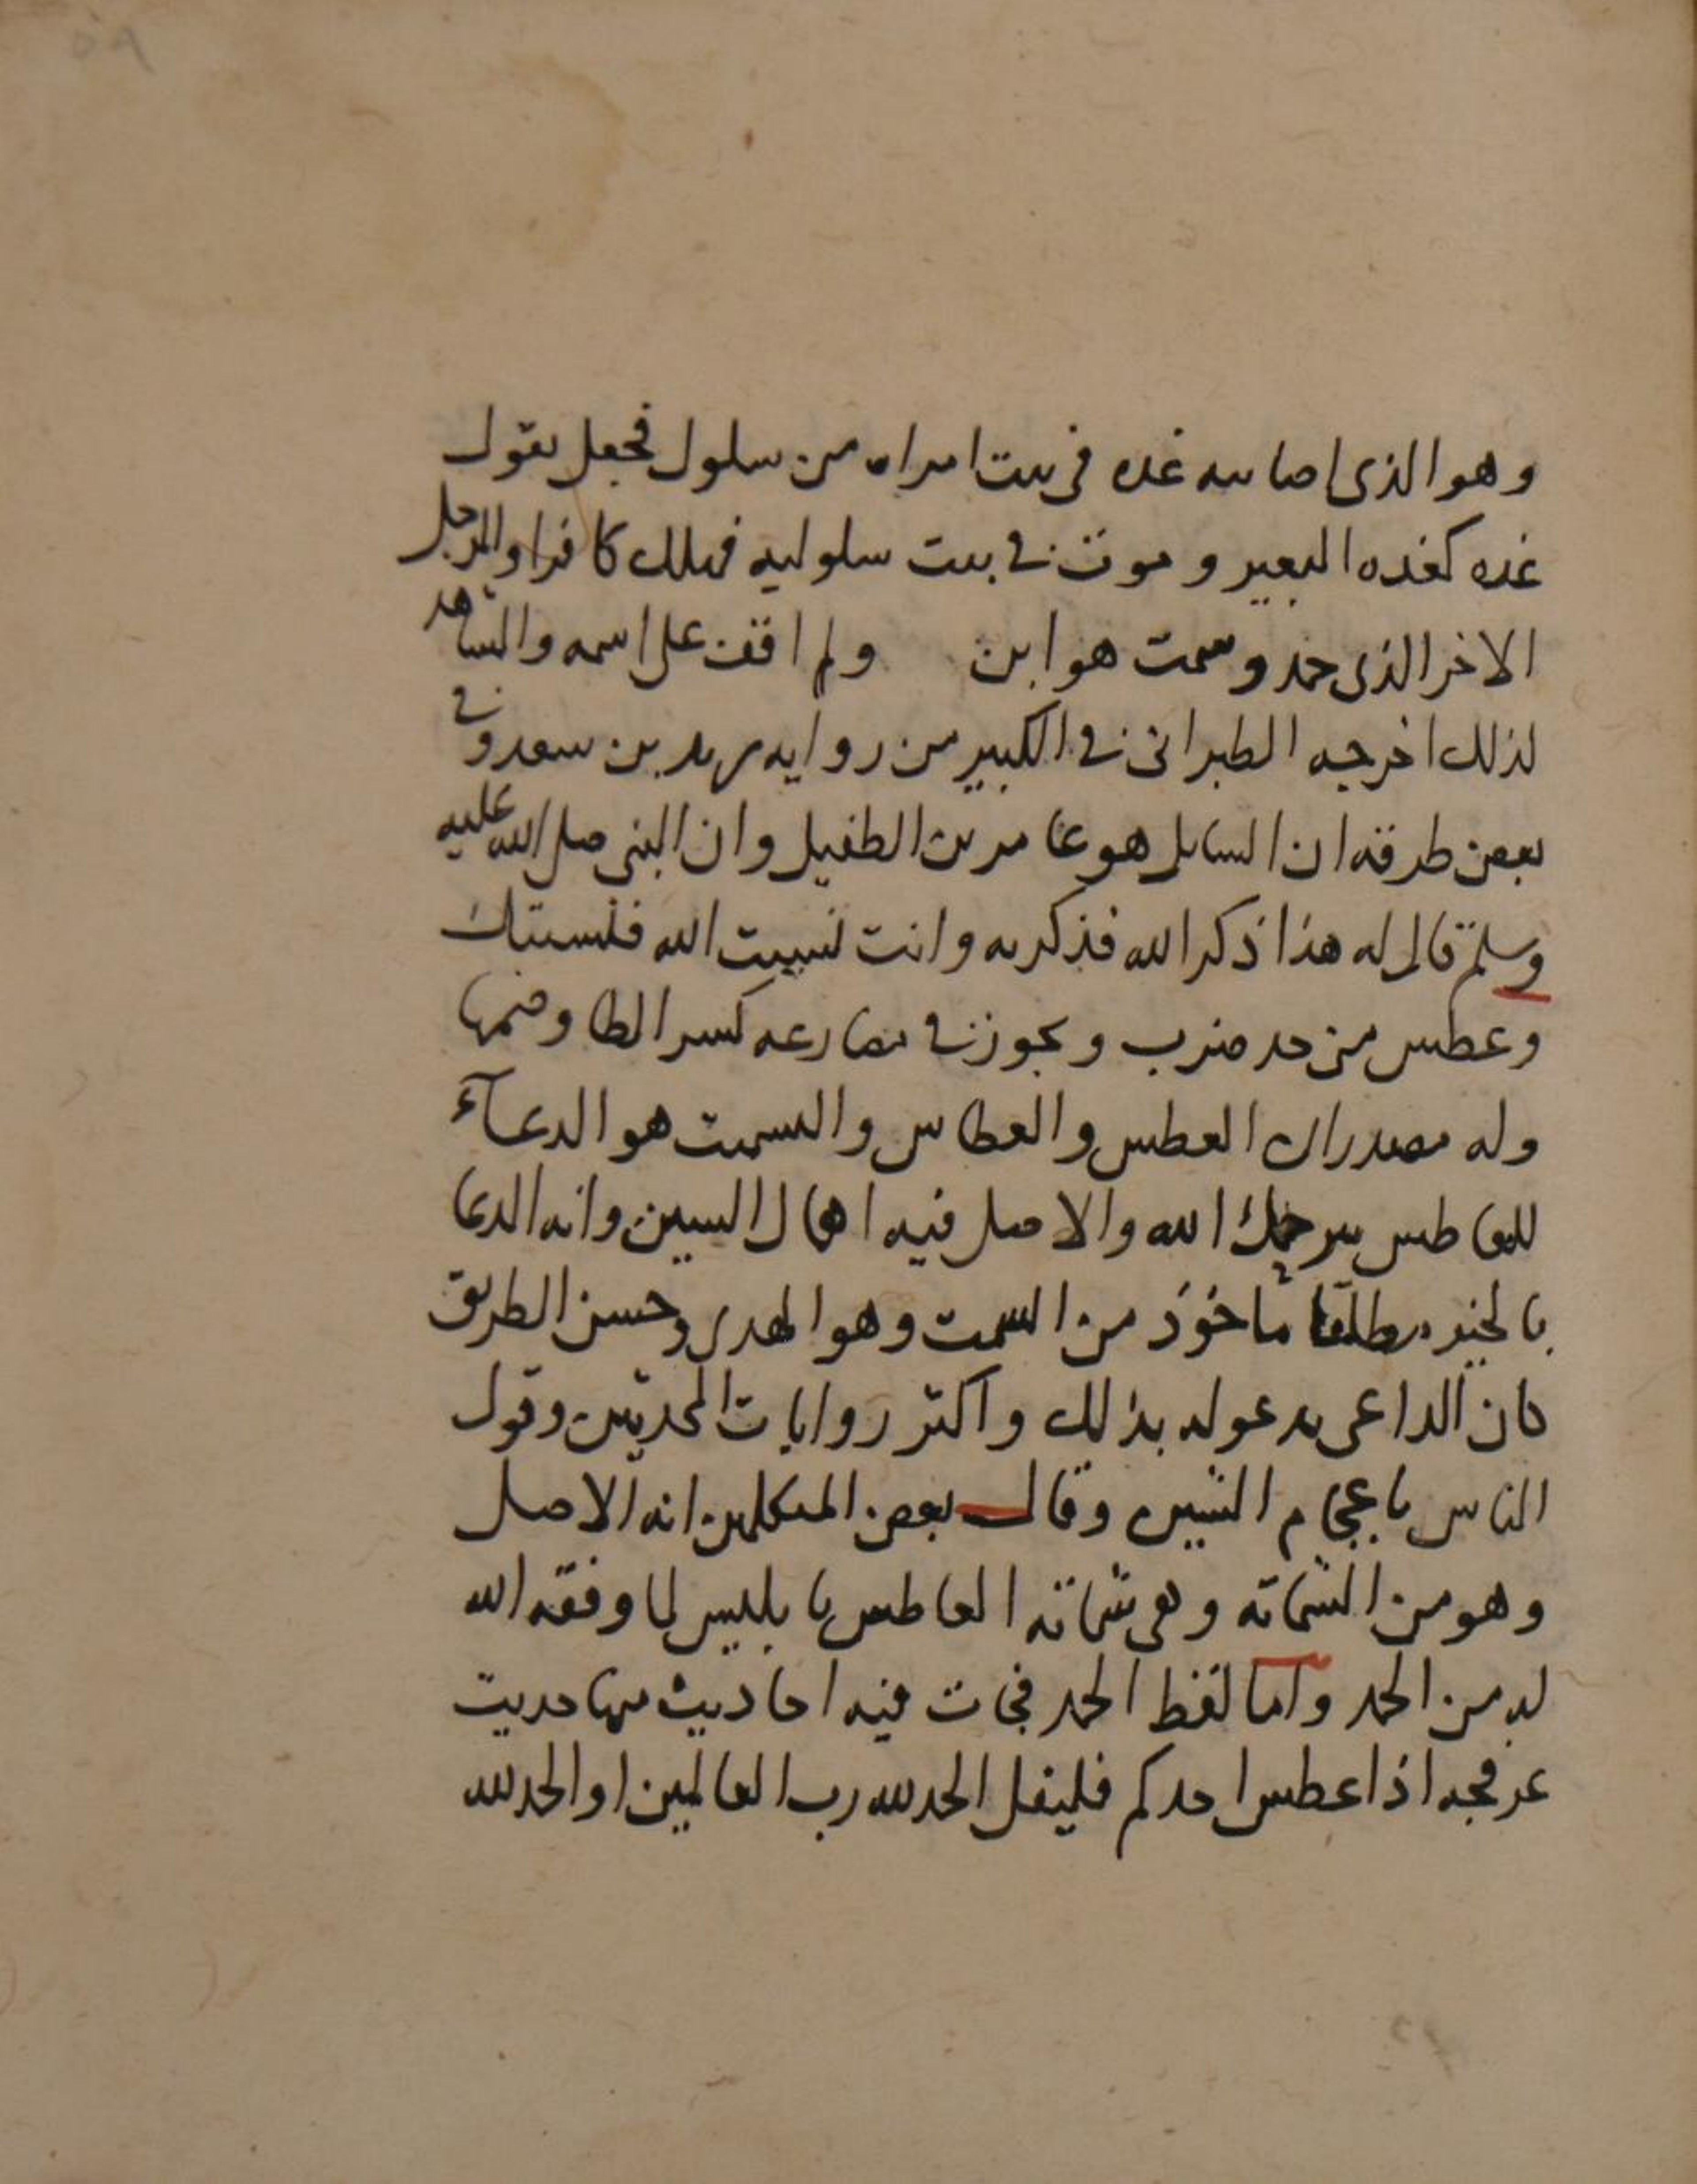 وهو الذى اصابته غده فى بيت امراه من سلول فجعل يقول
غده كغده البعير وموت فى بيت سلوليه فهلك كافرا والرجل
الاخر الذى حمد وسمت هو ابن ولم اقف على اسمه والشاهد
لذلك اخرجه الطبرانى فى الكبير من روايه سهل بن سعد وفى
بعض طرقه ان السايل هو عامر بن الطفيل وان النبى صلى الله عليه
وسلم قال له هذا ذكر الله فذكرته وانت نسيت الله فنسيتك
وعطس من حد ضرب ويجوز فى مضارعه كسر الطا وضمها
وله مصدران العطس والعطاس والتسميت هو الدعآء
للعاطس بيرحمك الله والاصل فيه اهمال السين وانه الدعا
بالخير مطلقا ماخوذ من السمت وهو الهدى وحسن الطريق
كان الداعى يدعو له بذلك واكثر روايات المحدثين وقول
الناس باعجام الشين وقال بعض المتكلمين انه الاصل
وهو من الشماته وهى شماته العاطس بابليس لما وفقه الله
له من الحمد واما لفظ الحمد فجات فيه احاديث منها حديث
عرفجه اذا عطس احدكم فليقل الحمد لله رب العالمين او الحمد لله